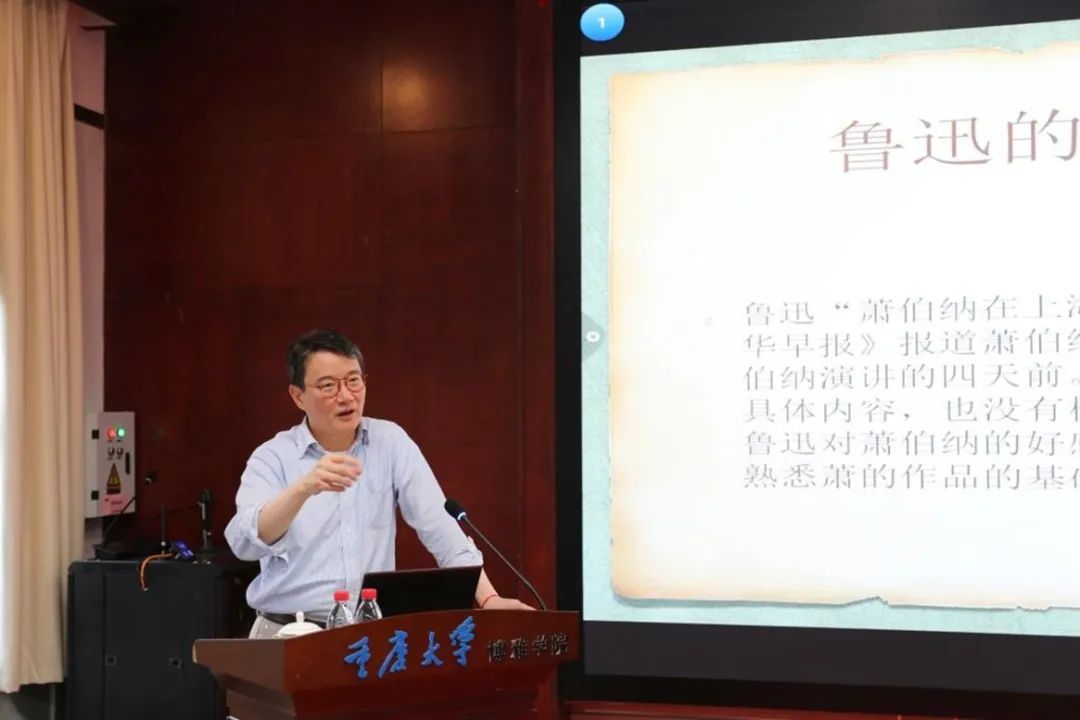 1
鲁迅的
鲁迅“萧伯纳在上
华早报》报道萧伯
伯纳演讲的四天前。
具体内容，也没有
鲁迅对萧伯纳的好
熟悉萧的作品的基
重庆大学 博雅学院